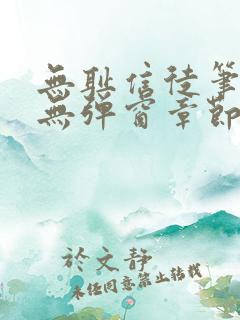 無恥信徒筆
無彈窗章節
於文靜
未經同意禁止轉載